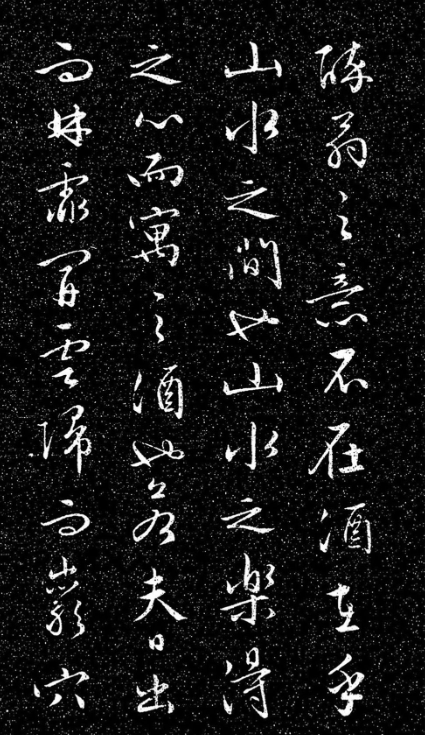 醉翁之意不在酒在乎
山水之間也山水之樂得
之心而寓之酒也若夫日出
而林霏開雲歸而巖穴